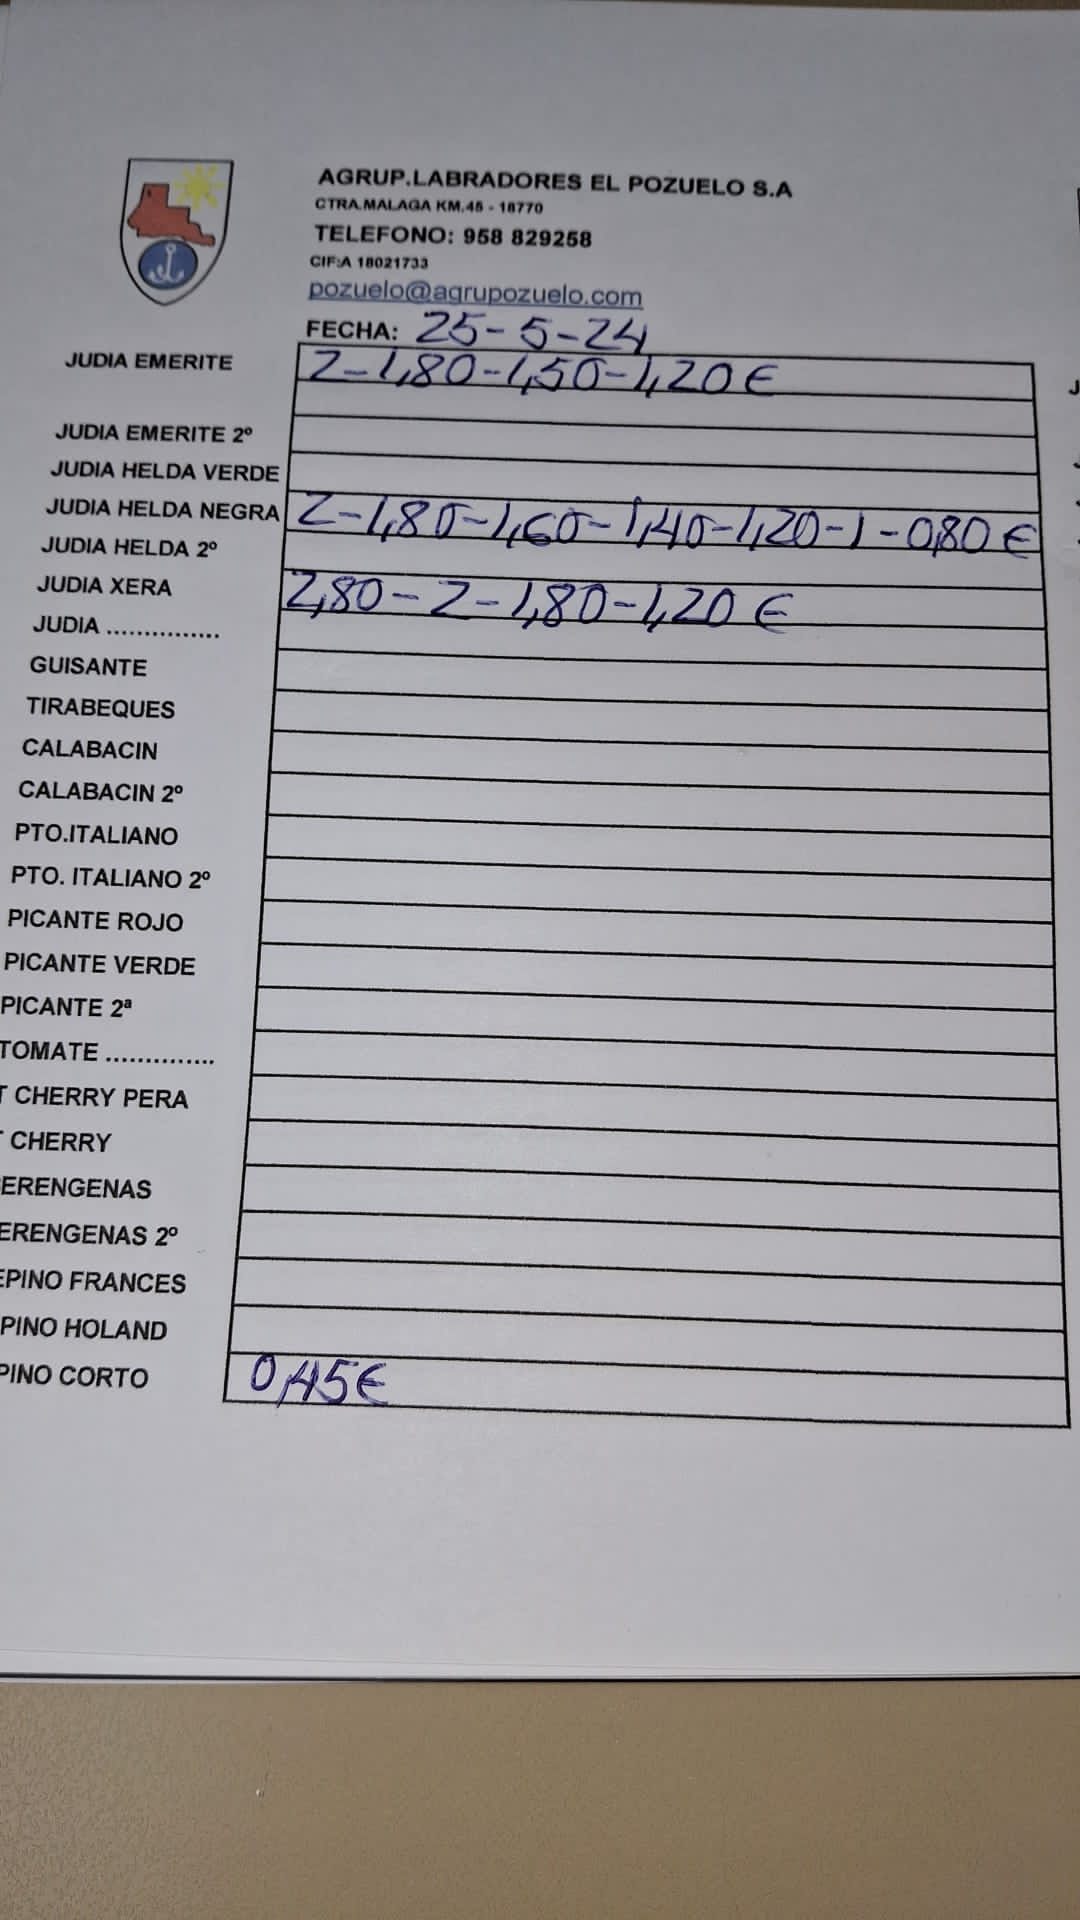 AGRUP.LABRADORES EL POZUELO S.A
CTRA.MALAGA KM.45 - 18770
TELEFONO: 958 829258
CIF:A 18021733
pozuelo@agrupozuelo.com
FECHA: 25-5-24
JUDIA EMERITE 2-1,80-1,50-1,20€
JUDIA EMERITE 2º
JUDIA HELDA VERDE
JUDIA HELDA NEGRA 2-1,80-1,60-1,40-1,20-1-0,80€
JUDIA HELDA 2º
JUDIA XERA 2,80-2-1,80-1,20€
JUDIA ...............
GUISANTE
TIRABEQUES
CALABACIN
CALABACIN 2º
PTO.ITALIANO
PTO. ITALIANO 2º
PICANTE ROJO
PICANTE VERDE
PICANTE 2ª
TOMATE ..............
T CHERRY PERA
T CHERRY
ERENGENAS
ERENGENAS 2º
EPINO FRANCES
PINO HOLAND
PINO CORTO 0,45€